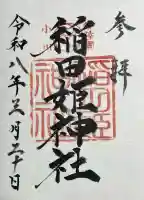 参拝
稲田姫神社
令和八年三月二十日